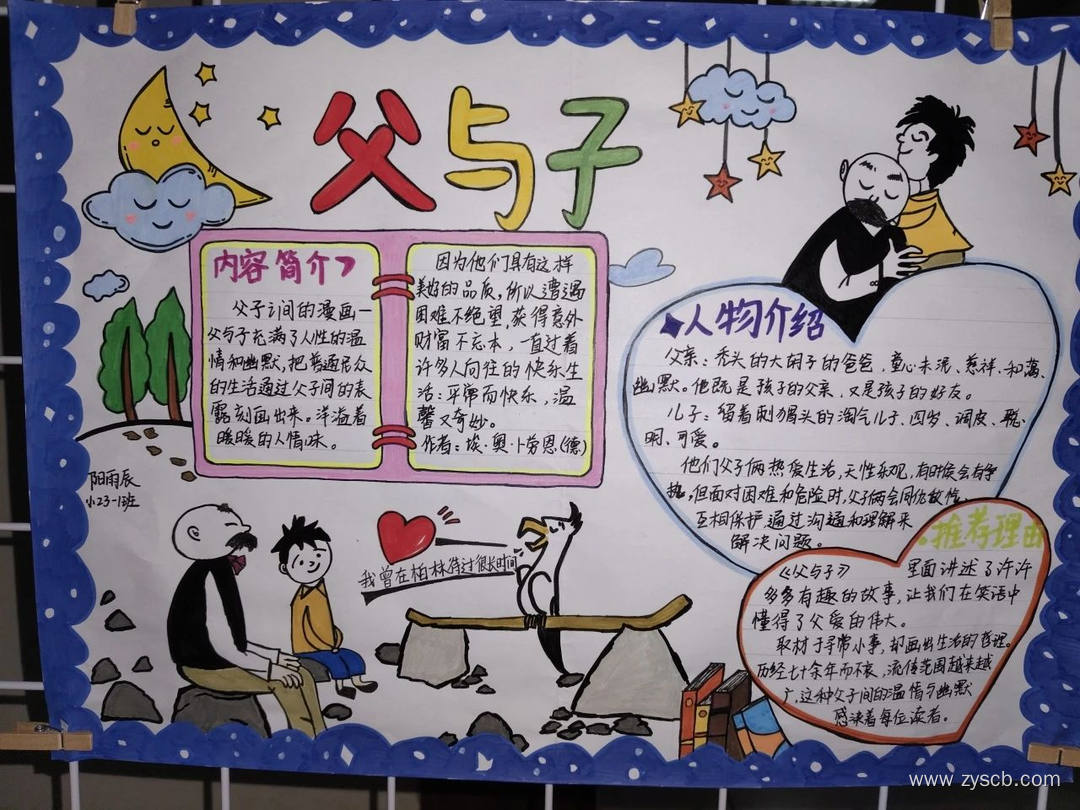 父与子
内容简介
父子之间的漫画一
父与子充满了人性的温
情和幽默,把普通民众
的生活通过父子间的表
露刻画出来。洋溢着
暖暖的人情味。
因为他们具有这样
美好的品质,所以遭遇
困难不绝望,获得意外
财富不忘本,一直过着
许多人向往的快乐生
活:平常而快乐,温
馨又奇妙。
作者:埃·奥·卜劳恩(德)
人物介绍
父亲:秃头的大胡子的爸爸,童心未泯、慈祥、和蔼、
幽默。他既是孩子的父亲,又是孩子的好友。
儿子:留着刺猬头的淘气儿子、四岁、调皮、聪
明、可爱。
他们父子俩热爱生活,天性乐观,有时候会有争
执,但面对困难和危险时,父子俩会同仇敌忾,
互相保护,通过沟通和理解来
解决问题。
推荐理由
《父与子》里面讲述了许许
多多有趣的故事,让我们在笑话中
懂得了父爱的伟大。
取材于寻常小事,却画出生活的哲理。
历经七十余年而不衰,流传范围越来越
广,这种父子间的温情与幽默
感染着每位读者。
阳雨辰
小23-13班
我曾在柏林待过很长时间
www.zyscb.com